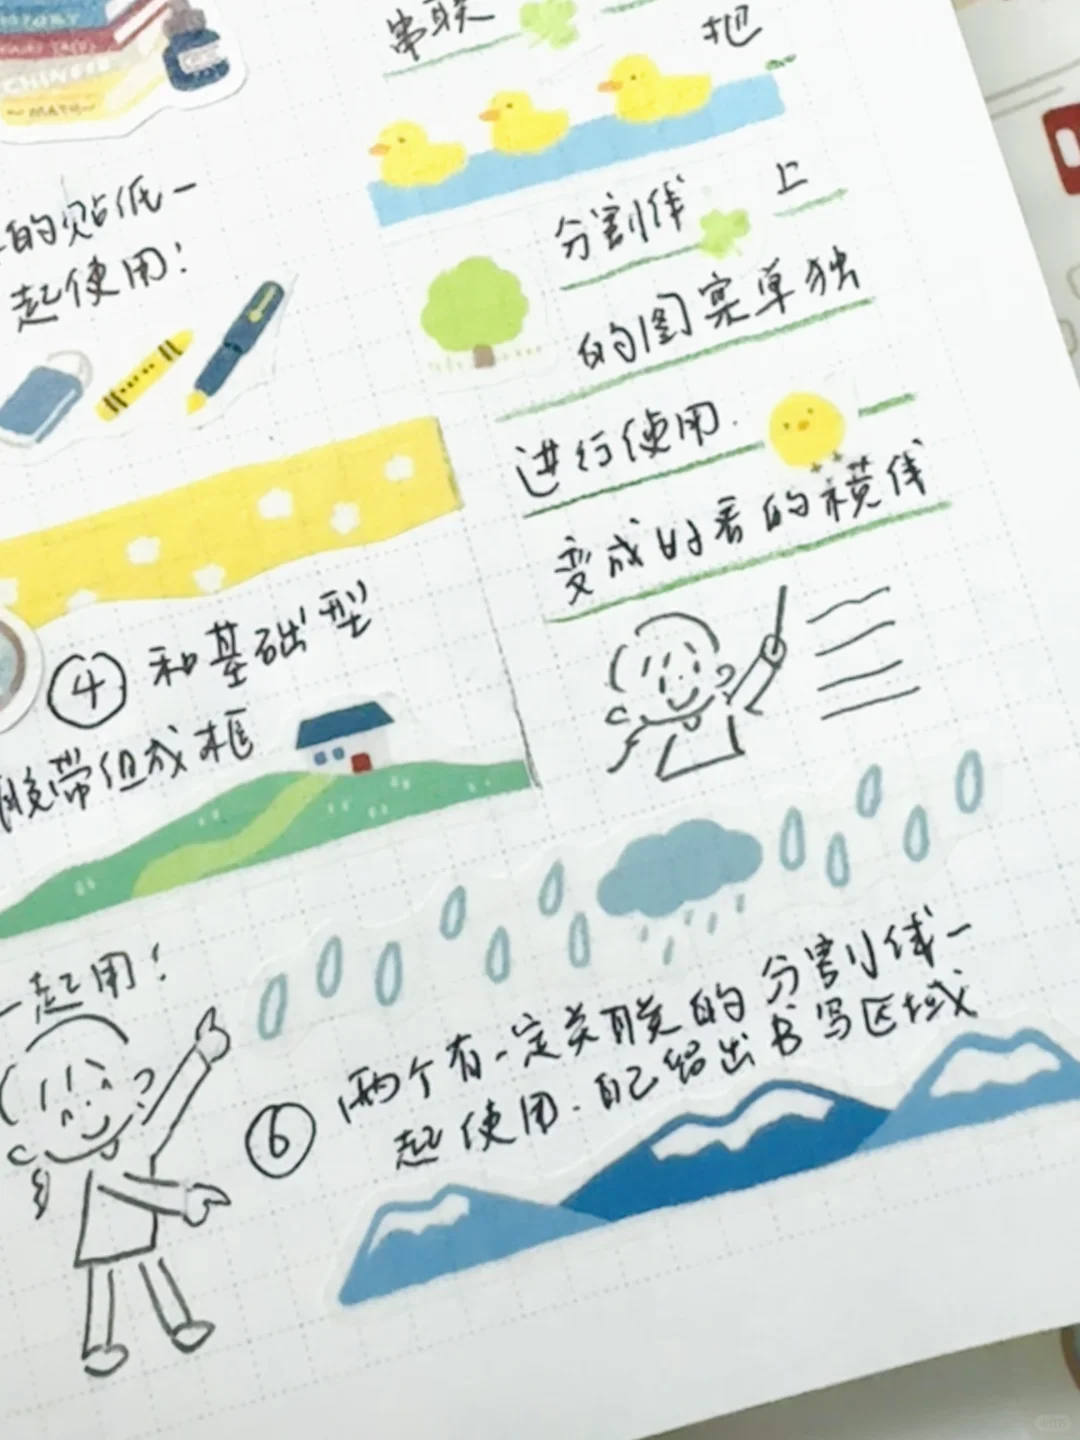 CHINESE
MATH
的贴纸一
起使用！
④ 和基础型
胶带组成框
一起用！
串联
把
分割线 上
的图案单独
进行使用.
变成好看的横线
⑥ 两个有一定关联的分割线一
起使用.自己给出书写区域